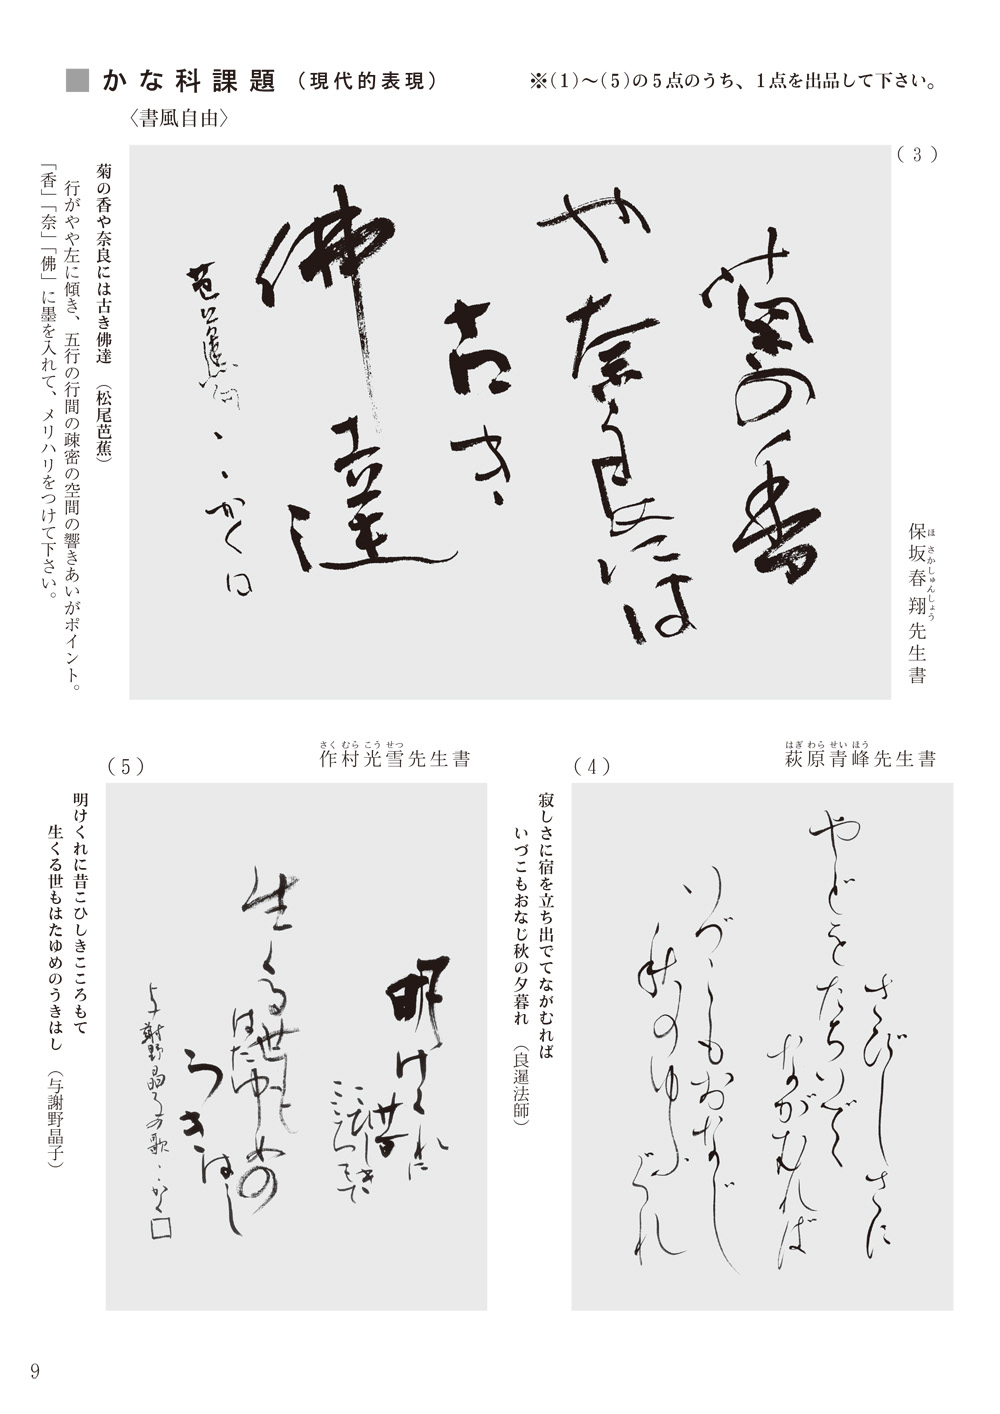 ■かな科課題（現代的表現）
※（1）～（5）の5点のうち、1点を出品して下さい。
〈書風自由〉
（3）
保坂春翔先生書
ほさかしゅんしょう
菊の香
や奈良には
古き
佛達
芭蕉句
、、かく□
菊の香や奈良には古き佛達　（松尾芭蕉）
行がやや左に傾き、五行の行間の疎密の空間の響きあいがポイント。
「香」「奈」「佛」に墨を入れて、メリハリをつけて下さい。
（4）
萩原青峰先生書
はぎわらせいほう
さびしさに
やどをたちいでて
ながむれば
いづこもおなじ
秋のゆふぐれ
寂しさに宿を立ち出でてながむれば
いづこもおなじ秋の夕暮れ　（良暹法師）
（5）
作村光雪先生書
さくむらこうせつ
明けくれに
昔
こひしき
こころもて
生くる世も
はたゆめの
うきはし
与謝野晶子の歌、、かく□
明けくれに昔こひしきこころもて
生くる世もはたゆめのうきはし　（与謝野晶子）
9